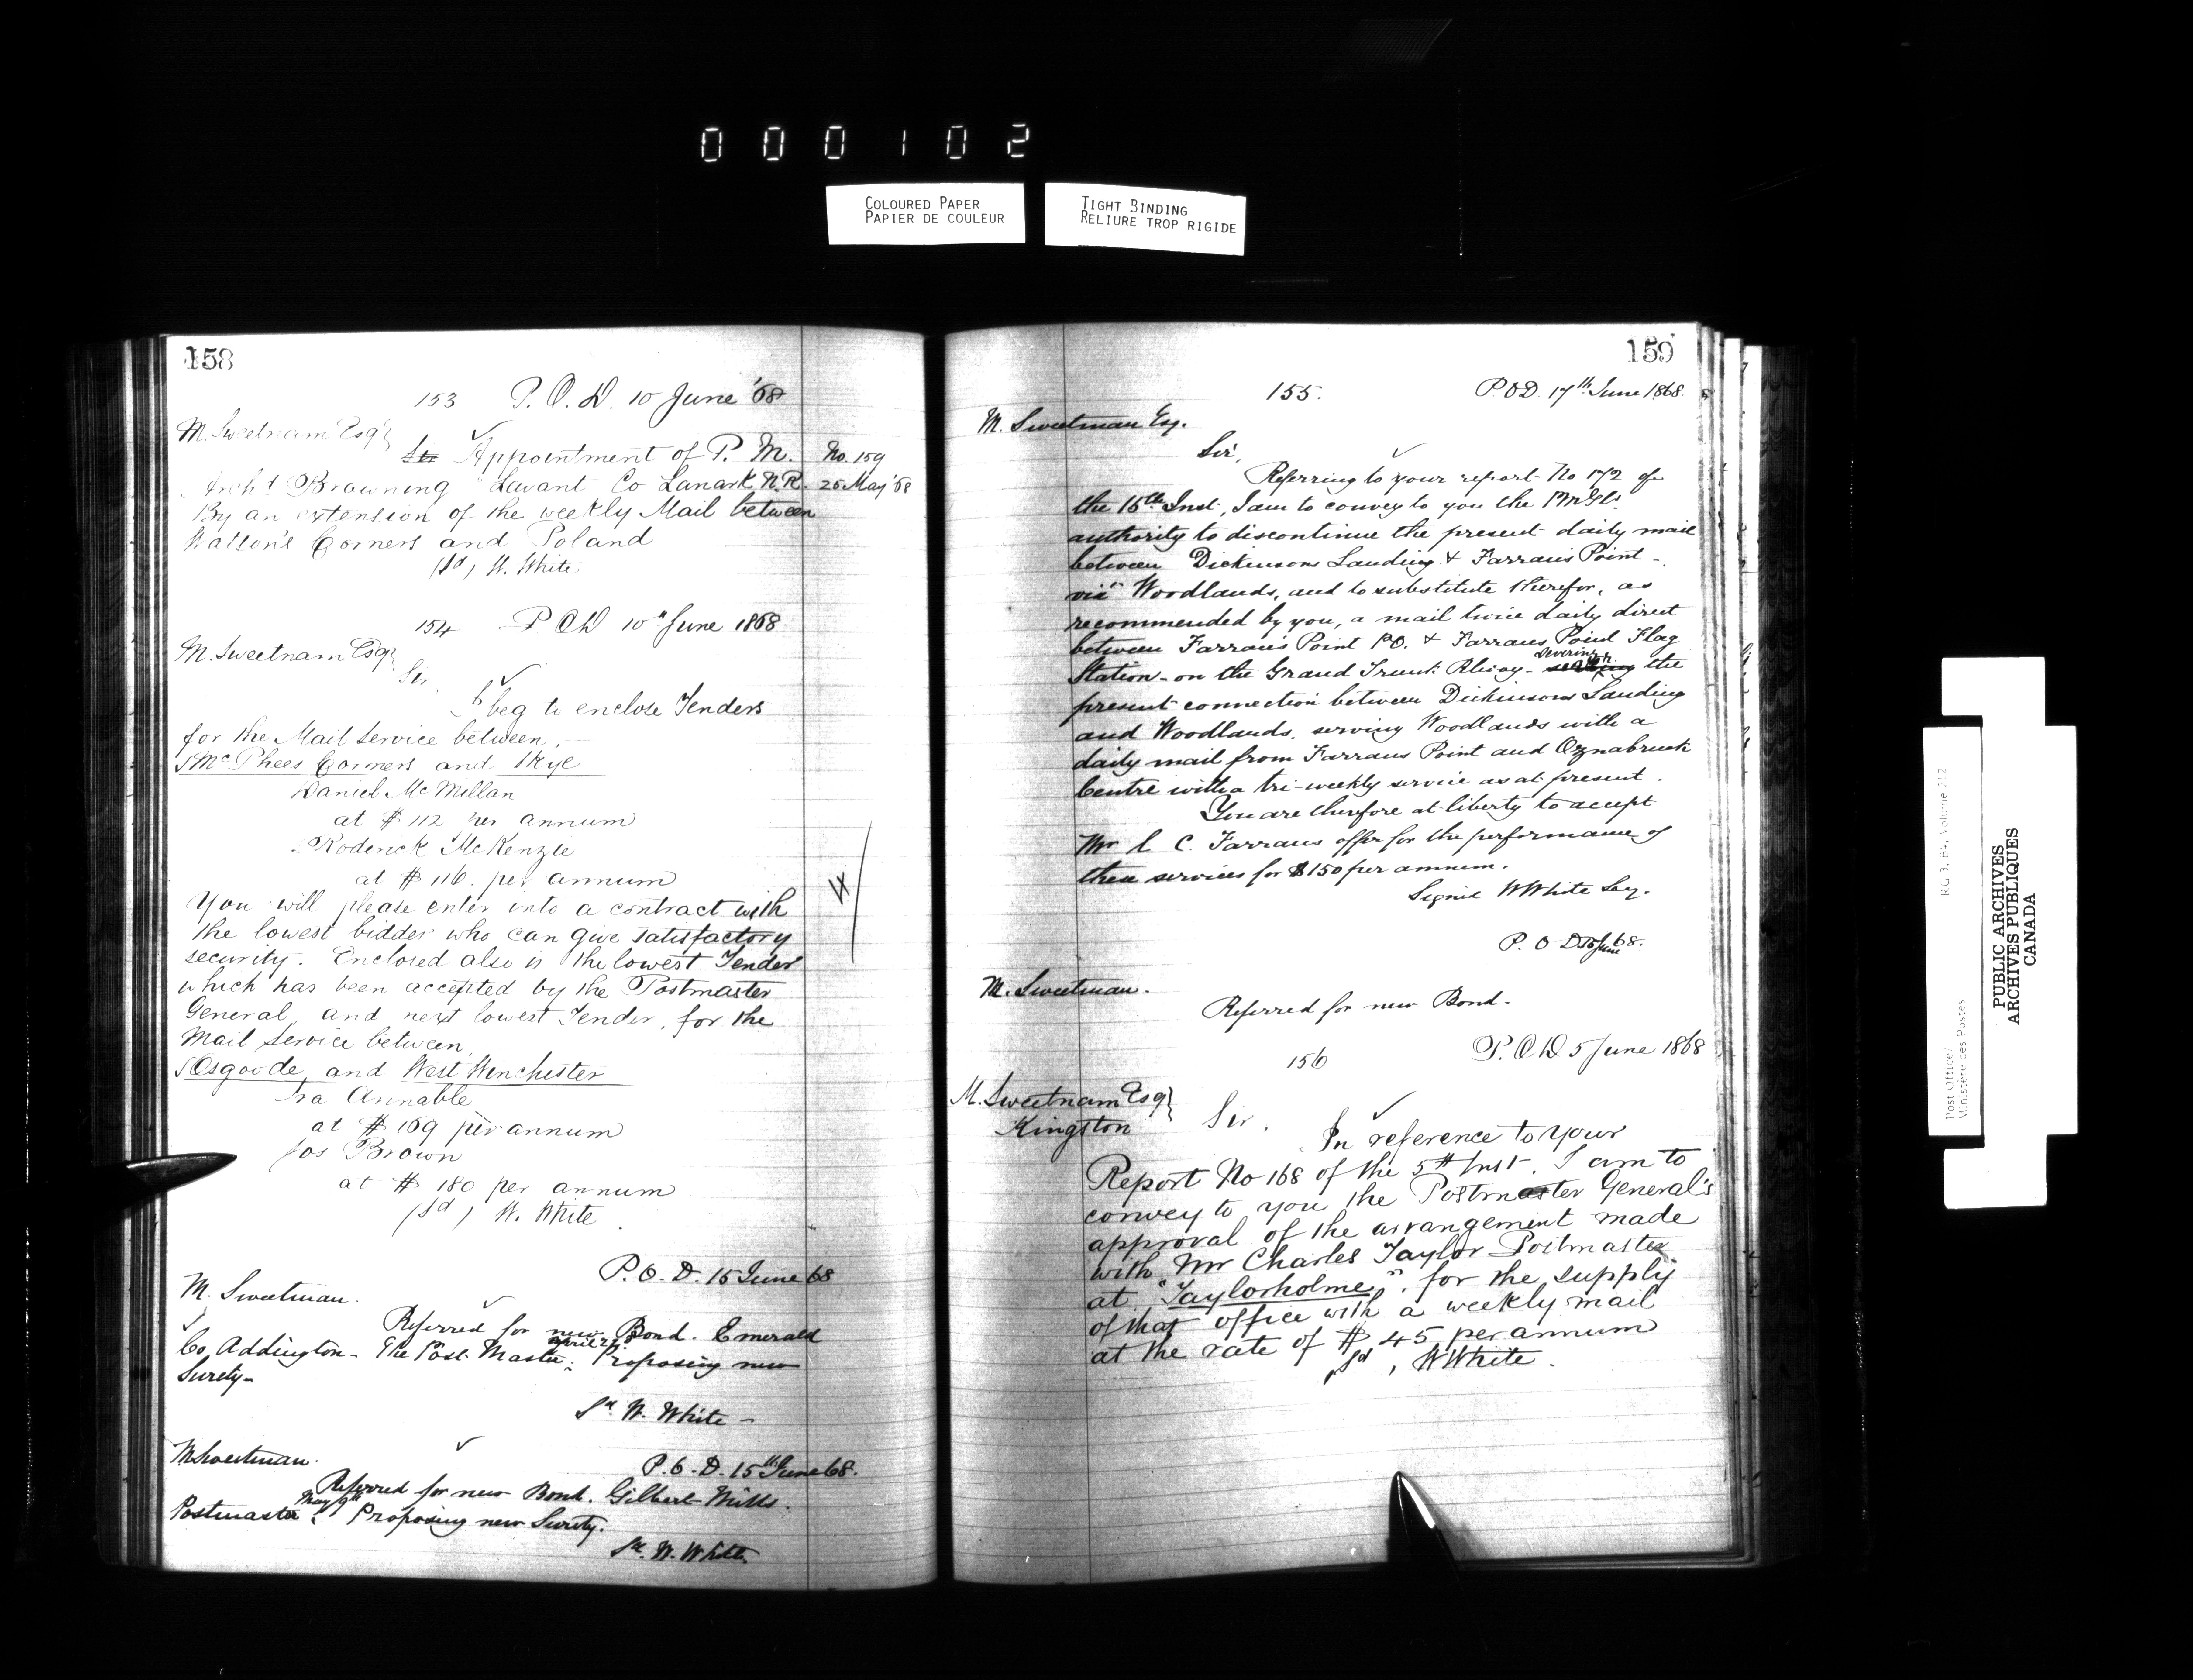 000102
COLOURED PAPER
PAPIER DE COULEUR
TIGHT BINDING
RELIURE TROP RIGIDE
158
153 P.O.D. 10 June '68
M. Sweetnam Esq
Sir Appointment of P. M. No. 159
Archd Browning "Lavant Co Lanark N.R. 25 May '68
By an extension of the weekly Mail between
Watson's Corners and Poland
(sd) W. White
154 P.O.D 10th June 1868
M. Sweetnam Esq
Sir,
I beg to enclose Tenders
for the Mail Service between,
McPhees Corners and Skye
Daniel McMillan
at $112 per annum
Roderick McKenzie
at $116. per annum
You will please enter into a contract with
the lowest bidder who can give satisfactory
security. Enclosed also is the lowest Tender
which has been accepted by the Postmaster
General, and next lowest Tender, for the
Mail Service between,
Osgoode, and West Winchester
Ira Annable
at $169 per annum
Jos Brown
at $180 per annum
(sd) W. White.
P.O.D. 15 June 68
M. Sweetnam.
Referred for new Bond. Emerald
Co Addington - The Post Master, april Proposing new
Surety-
Sd. W. White -
M Sweetnam.
P.O.D. 15th June 68.
Referred for new Bond. Gilbert Mills.
Postmaster, May 9th Proposing new Surety.
Sd. W. White
159
155. P.O.D. 17th June 1868.
M. Sweetnam Esq.
Sir,
Referring to your report No 172 of
the 15th Inst, I am to convey to you the PMGls.
authority to discontinue the present daily mail
between Dickinsons Landing & Farran's Point -
via" Woodlands, and to substitute therefor, as
recommended by you, a mail twice daily direct
between Farran's Point P.O. & Farrans Point Flag
Station - on the Grand Trunk Rlway - severing the
present connection between Dickinsons Landing
and Woodlands, serving Woodlands with a
daily mail from Farrans Point and Oznabruck
Centre with a tri-weekly service as at present.
You are therefore at liberty to accept
Mr C. C. Farrans offer for the performance of
these services for $150 per annum.
Signed W White Secy.
P.O.D 15 June 68.
M. Sweetnam.
Referred for new Bond.
156 P.O.D 5 June 1868
M. Sweetnam Esq
Kingston
Sir. In reference to your
Report No 168 of the 5th Inst. I am to
convey to you the Postmaster General's
approval of the arrangement made
with Mr Charles Taylor Postmaster
at "Taylorholme", for the supply
of that office with a weekly mail
at the rate of $45 per annum
sd, W White.
Post Office/
Ministère des Postes
RG 3, B4, Volume 212
PUBLIC ARCHIVES
ARCHIVES PUBLIQUES
CANADA